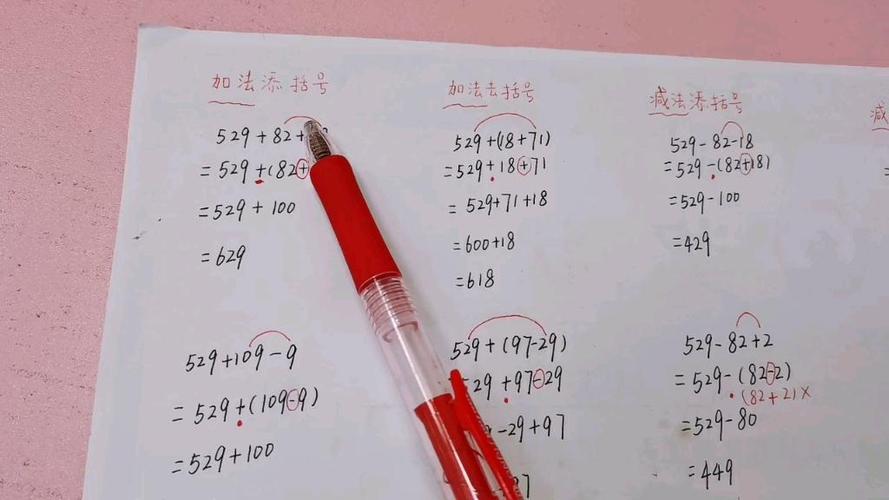 加法添括号
529+82+
=529+(82+
=529+100
=629
加法去括号
529+(18+71)
=529+18+71
=529+71+18
=600+18
=618
减法添括号
529-82-18
=529-(82+18)
=529-100
=429
减
=
529+109-9
=529+(109-9)
=529+100
529+(97-29)
529+97-29
-29+97
529-82+2
=529-(82-2)
(82+2)×
=529-80
=449